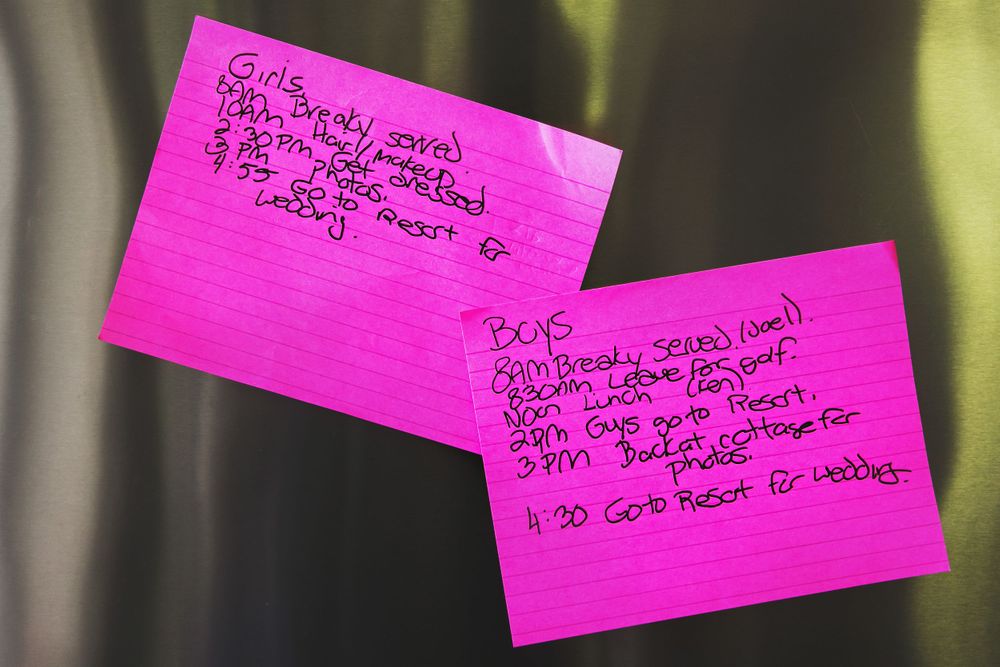 Girls
8AM Breaky served
10AM Hair/makeup.
2:30PM Get dressed.
3 PM photos.
4:55 Go to Resort for
wedding.
Boys
8AM Breaky served. (Joel).
830AM. Leave for golf.
Noon Lunch (Ken)
2PM Guys go to Resort.
3PM Back at cottage for
photos.
4:30 Go to Resort for wedding.